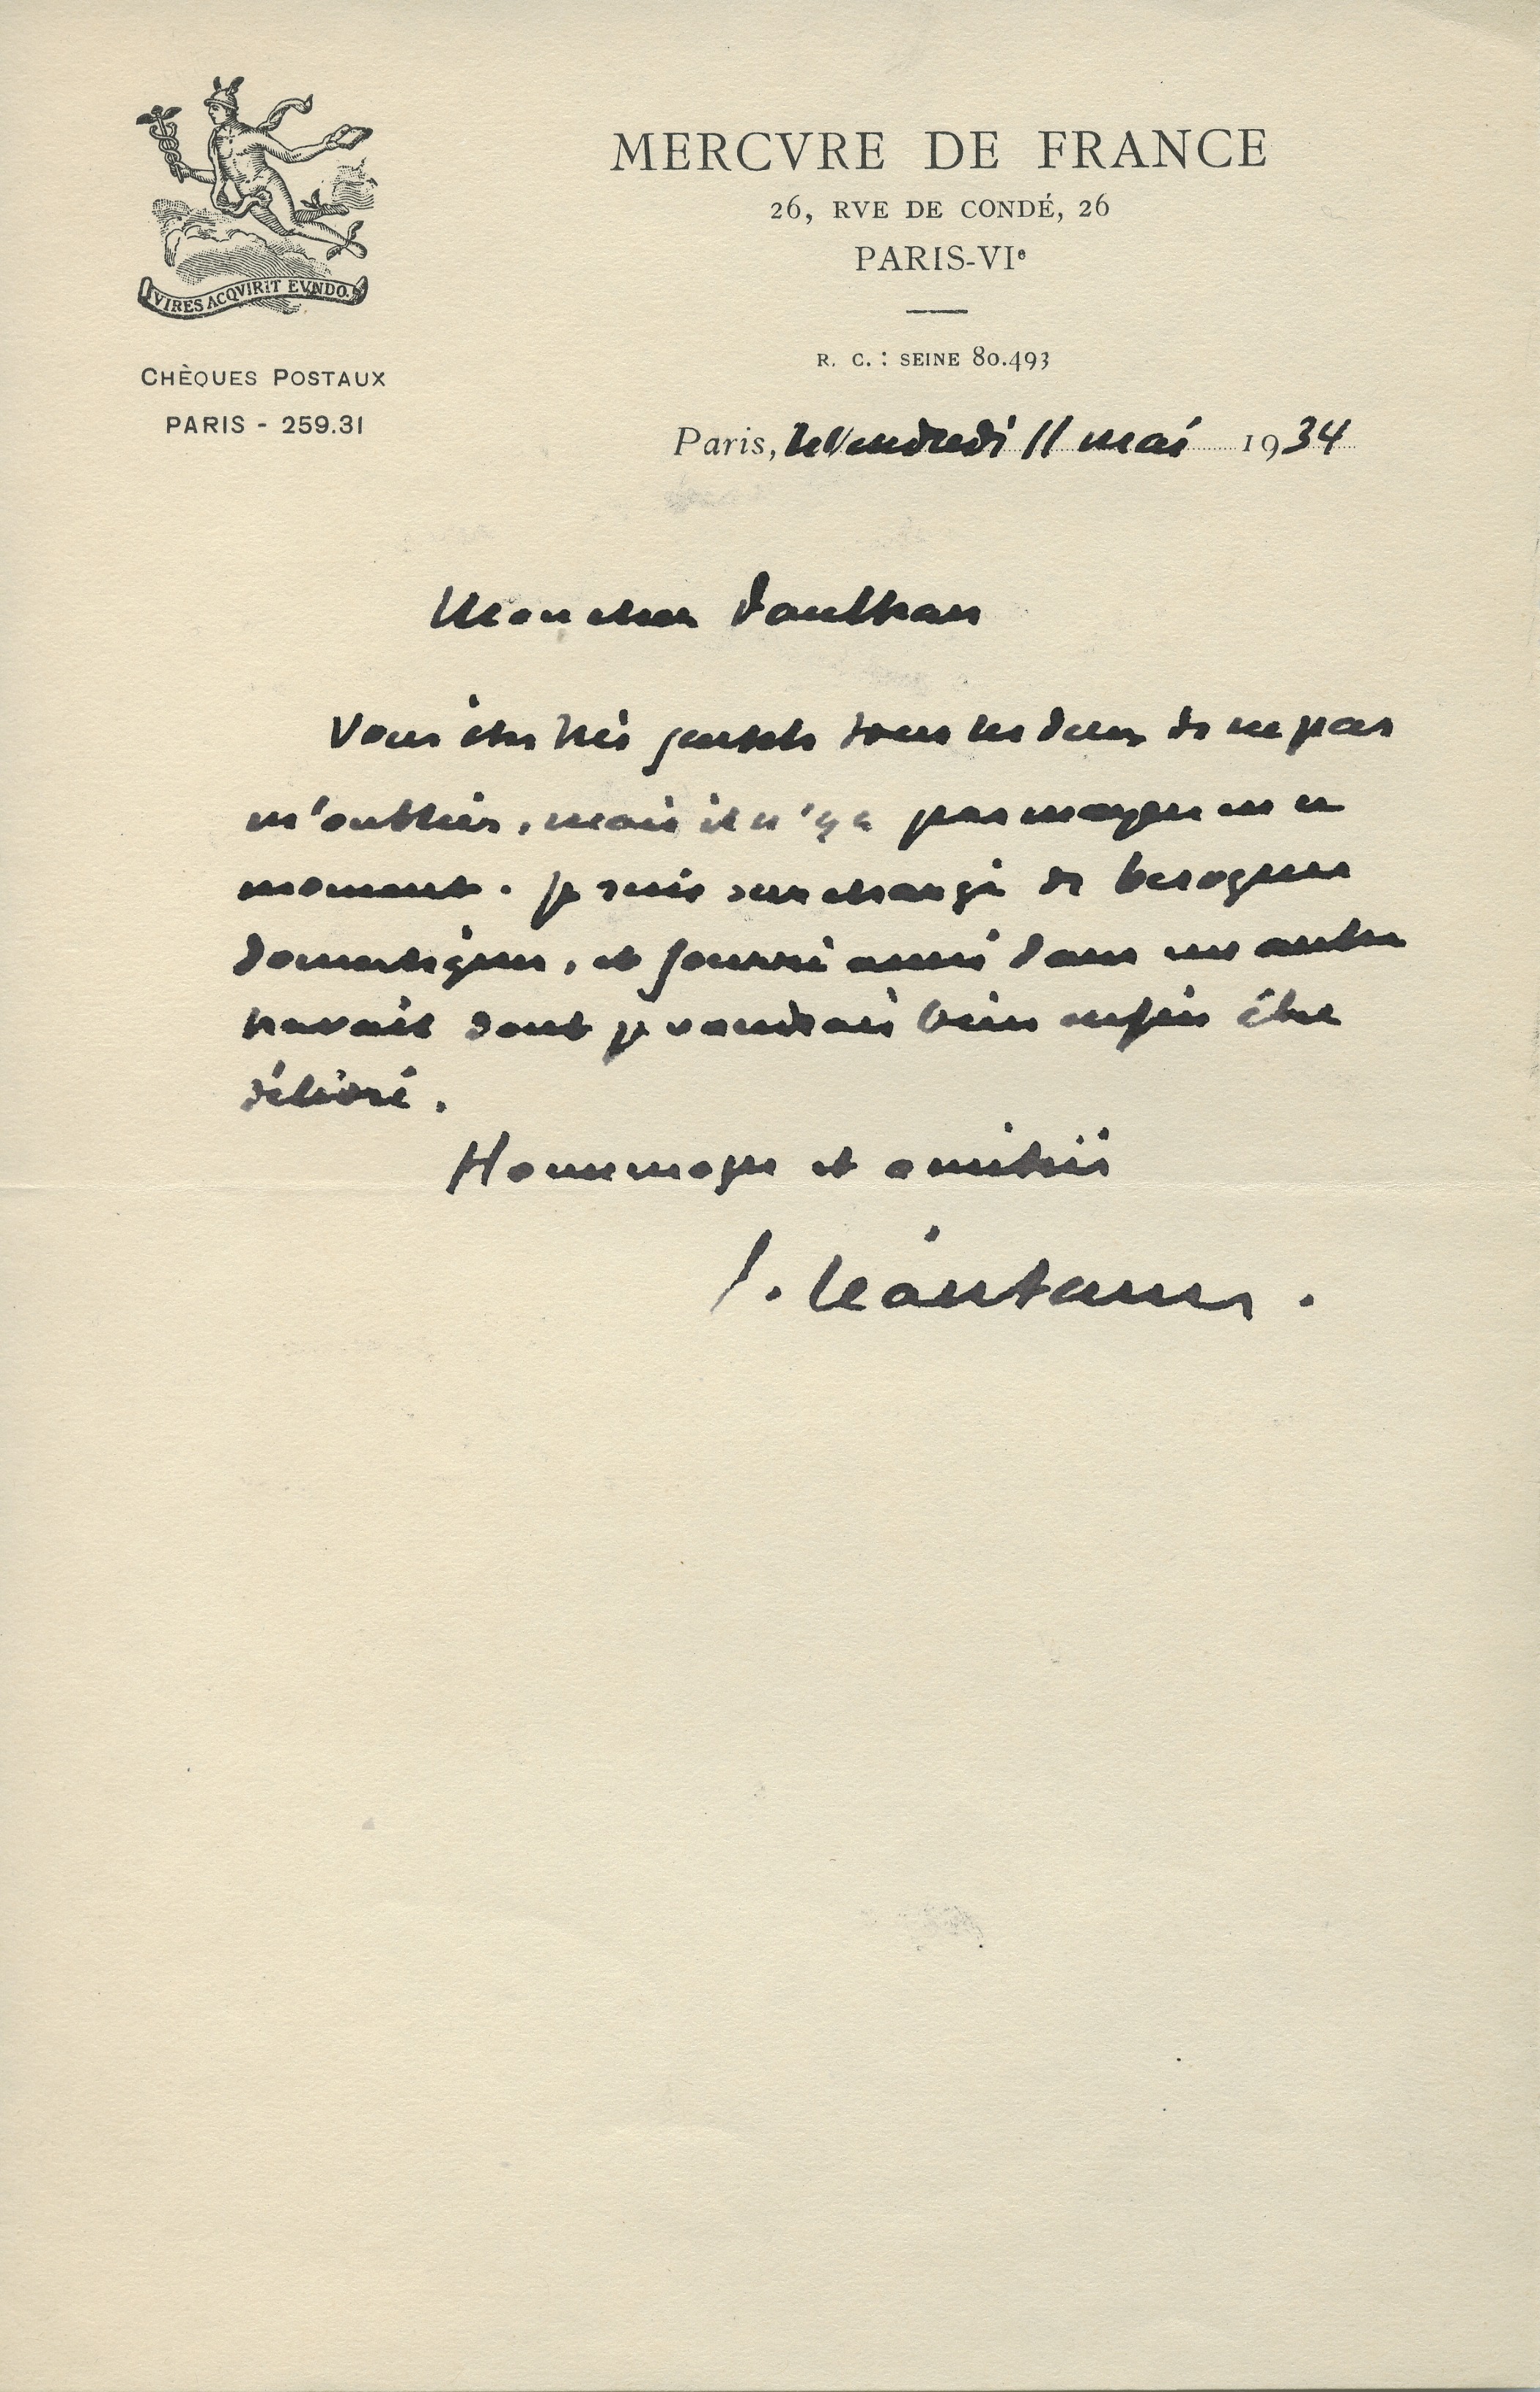 VIRES ACQVIRIT EVNDO.
CHÈQUES POSTAUX
PARIS - 259.31
MERCVRE DE FRANCE
26, RVE DE CONDÉ, 26
PARIS-VIe
R. C. : SEINE 80.493
Paris, le Vendredi 11 mai 1934
Mon cher Paulhan
Vous êtes très gentils tous les deux de ne pas
m'oublier, mais il n'y a pas moyen en ce
moment. Je suis surchargé de besognes
domestiques, et fourré aussi dans un autre
travail dont je voudrais bien enfin être
délivré.
Hommages et amitiés
P. Léautaud.